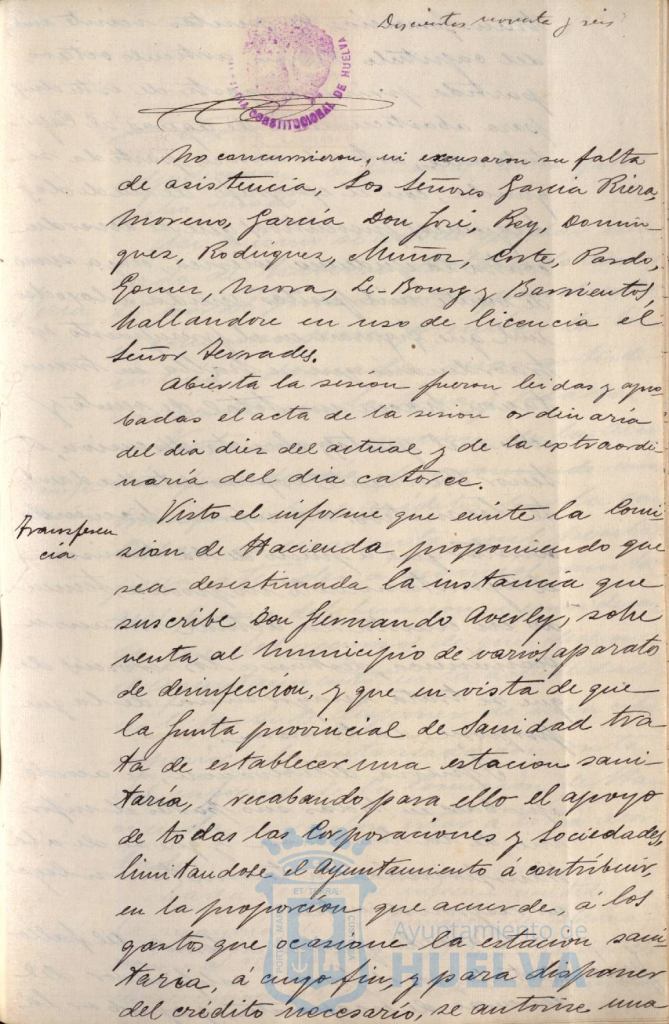 Doscientos noventa y seis
CONSTITUCIONAL DE HUELVA
No concurrieron, ni excusaron su falta
de asistencia, los Señores Garcia Riera,
Moreno, García Don José, Rey, Domin-
guez, Rodriguez, Muñoz, Corte, Pardo,
Gomez, Mora, Le-Bourg y Barrientos,
hallandose en uso de licencia el
Señor Terrades.
Abierta la sesion fueron leidas y apro-
badas el acta de la sesion ordinaria
del dia diez del actual y de la extraordi-
naría del dia catorce.
Transferen
cia
Visto el informe que emite la Comi-
sion de Hacienda proponiendo que
sea desestimada la instancia que
suscribe Don Fernando Averly, sobre
venta al Municipio de varios aparatos
de desinfección, y que en vista de que
la Junta provincial de Sanidad tra
ta de establecer una estacion sani-
taría, recabando para ello el apoyo
de todas las Corporaciones y Sociedades,
limitandose el Ayuntamiento á contribuir,
en la proporción que acuerde, á los
gastos que ocasione la estacion sani
taria, á cuyo fin, y para disponer
del crédito necesario, se autorice una
Ayuntamiento de
HUELVA